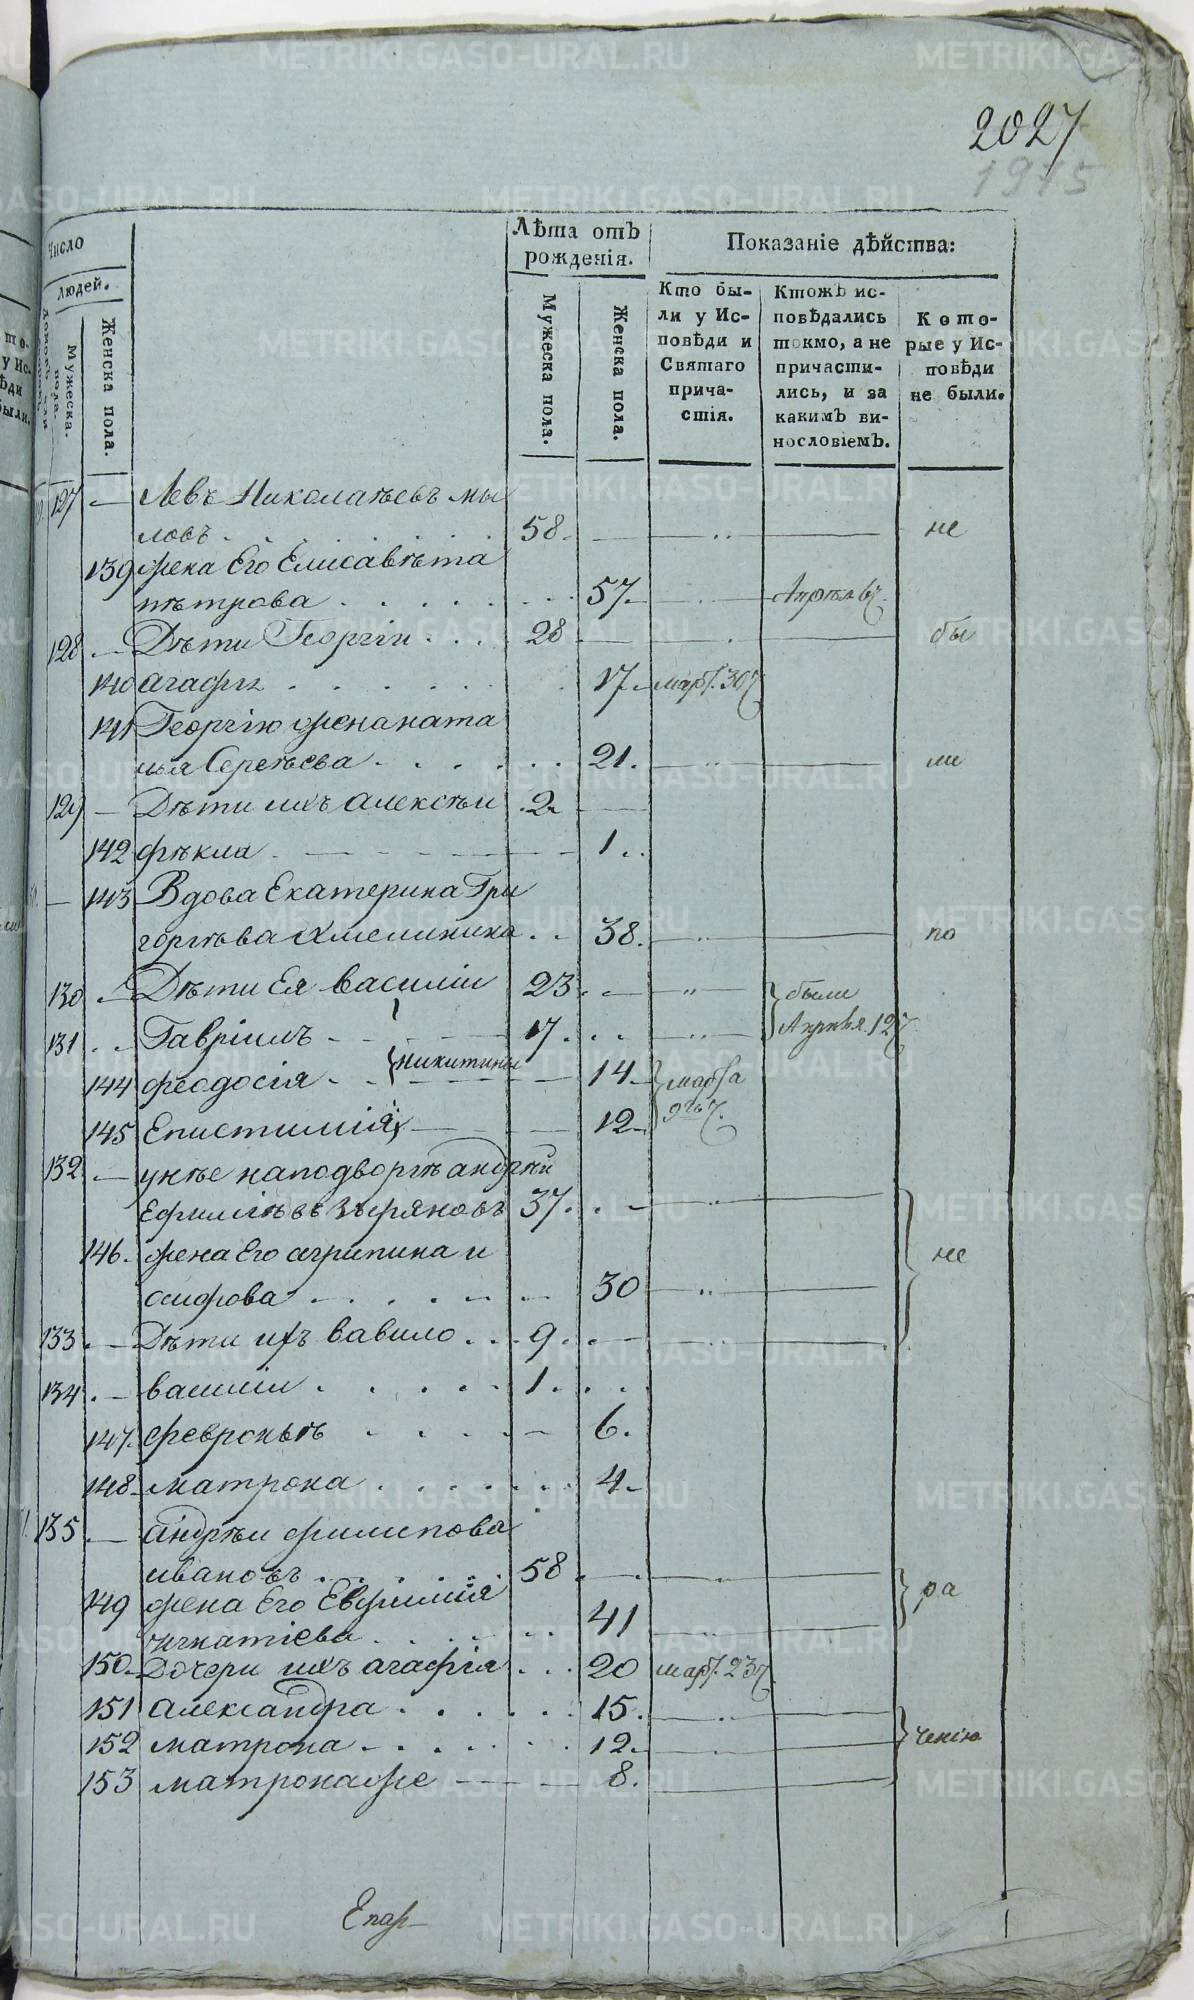 2027
1975
Число
Людей.
Мужеска пола.
Женска пола.
Лѣта отъ рожденія.
Мужеска пола.
Женска пола.
Показаніе дѣйства:
Кто были у Исповѣди и Святаго причастія.
Ктожъ исповѣдались токмо, а не причастились, и за какимъ винословіемъ.
Которые у Исповѣди не были.
127 — Левъ Николаѣевъ мы
ловъ 58 — не
139 жена Его Елисавѣта
пѣтрова 57
128 — Дѣти Георгіи 28 — бы
140 агафіѧ 17 март. 30
141 Георгію жена ната
лья Сергѣева 21 — ли
129 — Дѣти ихъ алексѣи 2
142 фѣкла 1
— 143 Вдова Екатерина Гри
горѣва Хмелинина 38 — по
130 — Дѣти Ея василіи 23 были
131 Гавріилъ 17 Апрѣля 12
144 феодосія Никитины 14 марта
145 Епистимія 12
132 — унѣе наподворѣ андрѣи
Ефимѣвъ Зѣряновъ 37
146 жена Его агрипина и не
осифова 30
133 — Дѣти ихъ вавило 9
134 — василіи 1
147 февроньѣ 6
148 матрона 4
135 — андрѣи филипова
ивановъ 58 ра
149 жена Его Евфимія
игнатіева 41
150 Дочери ихъ агафія 20 март. 23
151 александра 15
152 матрона 12 чению
153 матронаже 8
Епар
METRIKI.GASO-URAL.RU